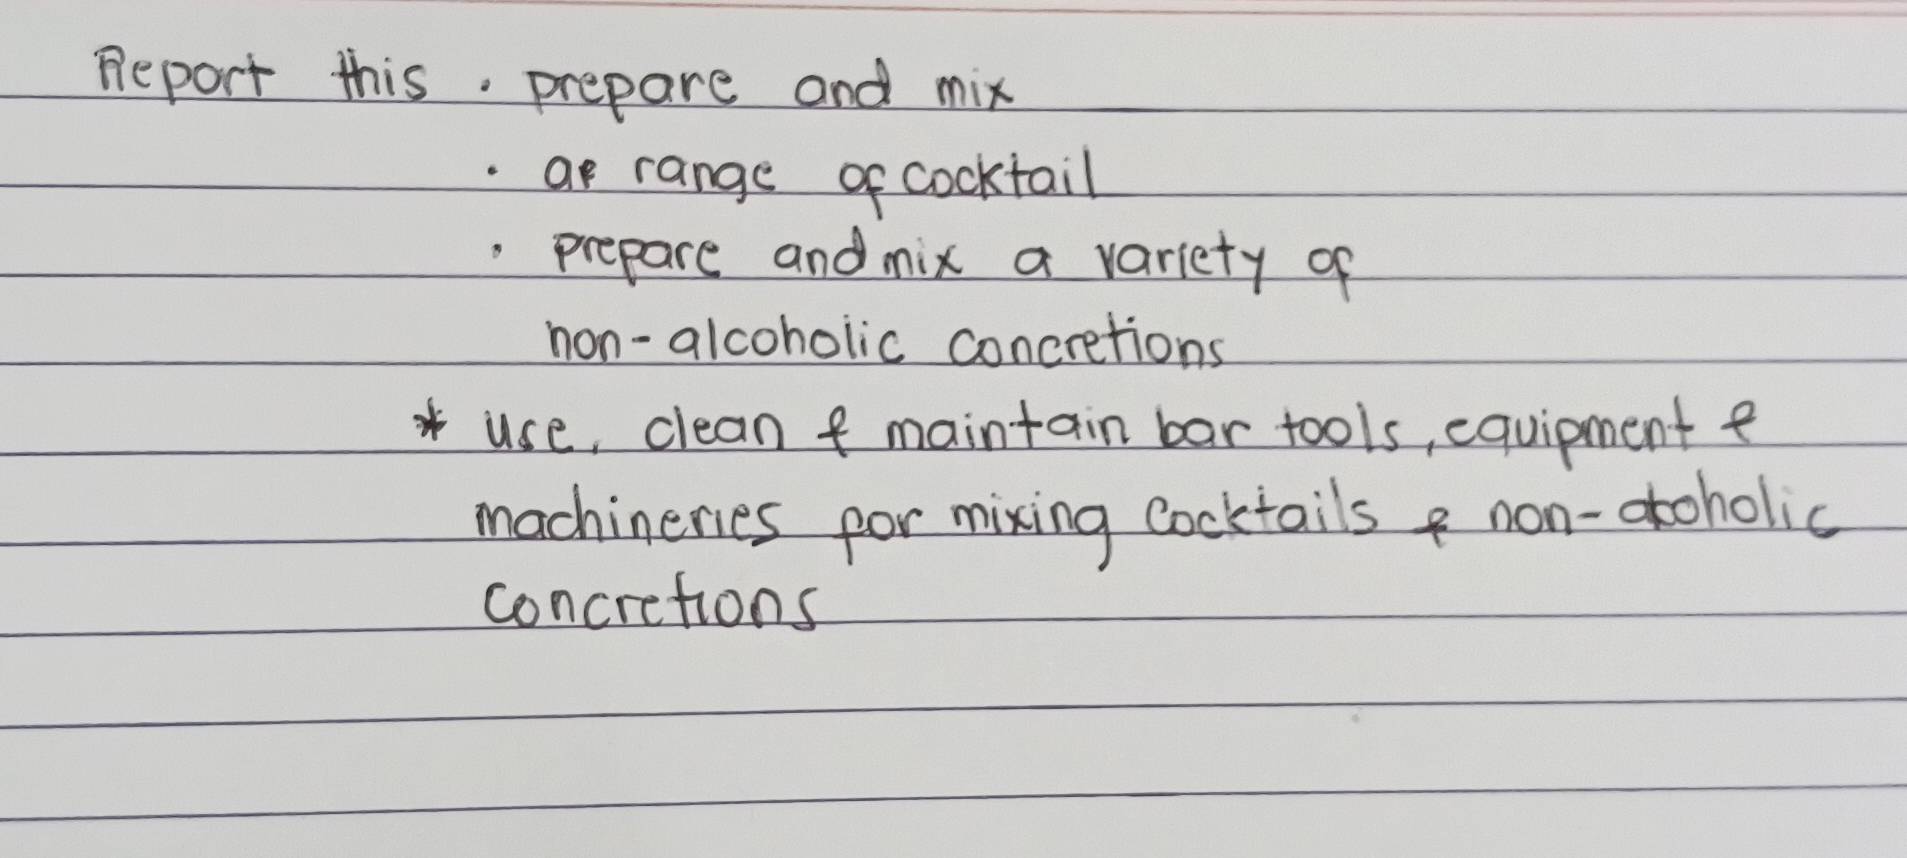 Report this . prepare and mix
. a range of cocktail
. prepare and mix a variety of
non-alcoholic concretions
* use, clean & maintain bar tools, equipment &
machineries for mixing cocktails & non-alcoholic
concretions